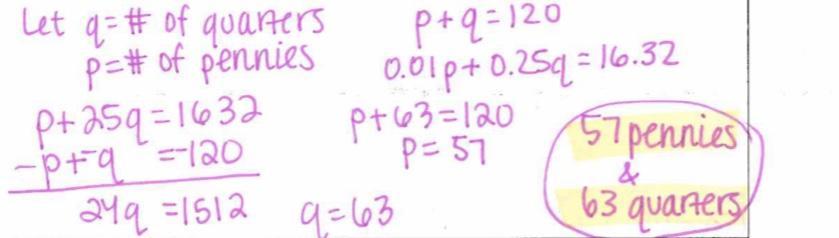 Let q=# of quarters
p=# of pennies
p+q=120
0.01p+0.25q=16.32
p+25q=1632
-p+-q =-120
24q =1512
q=63
p+63=120
p=57
57 pennies
&
63 quarters